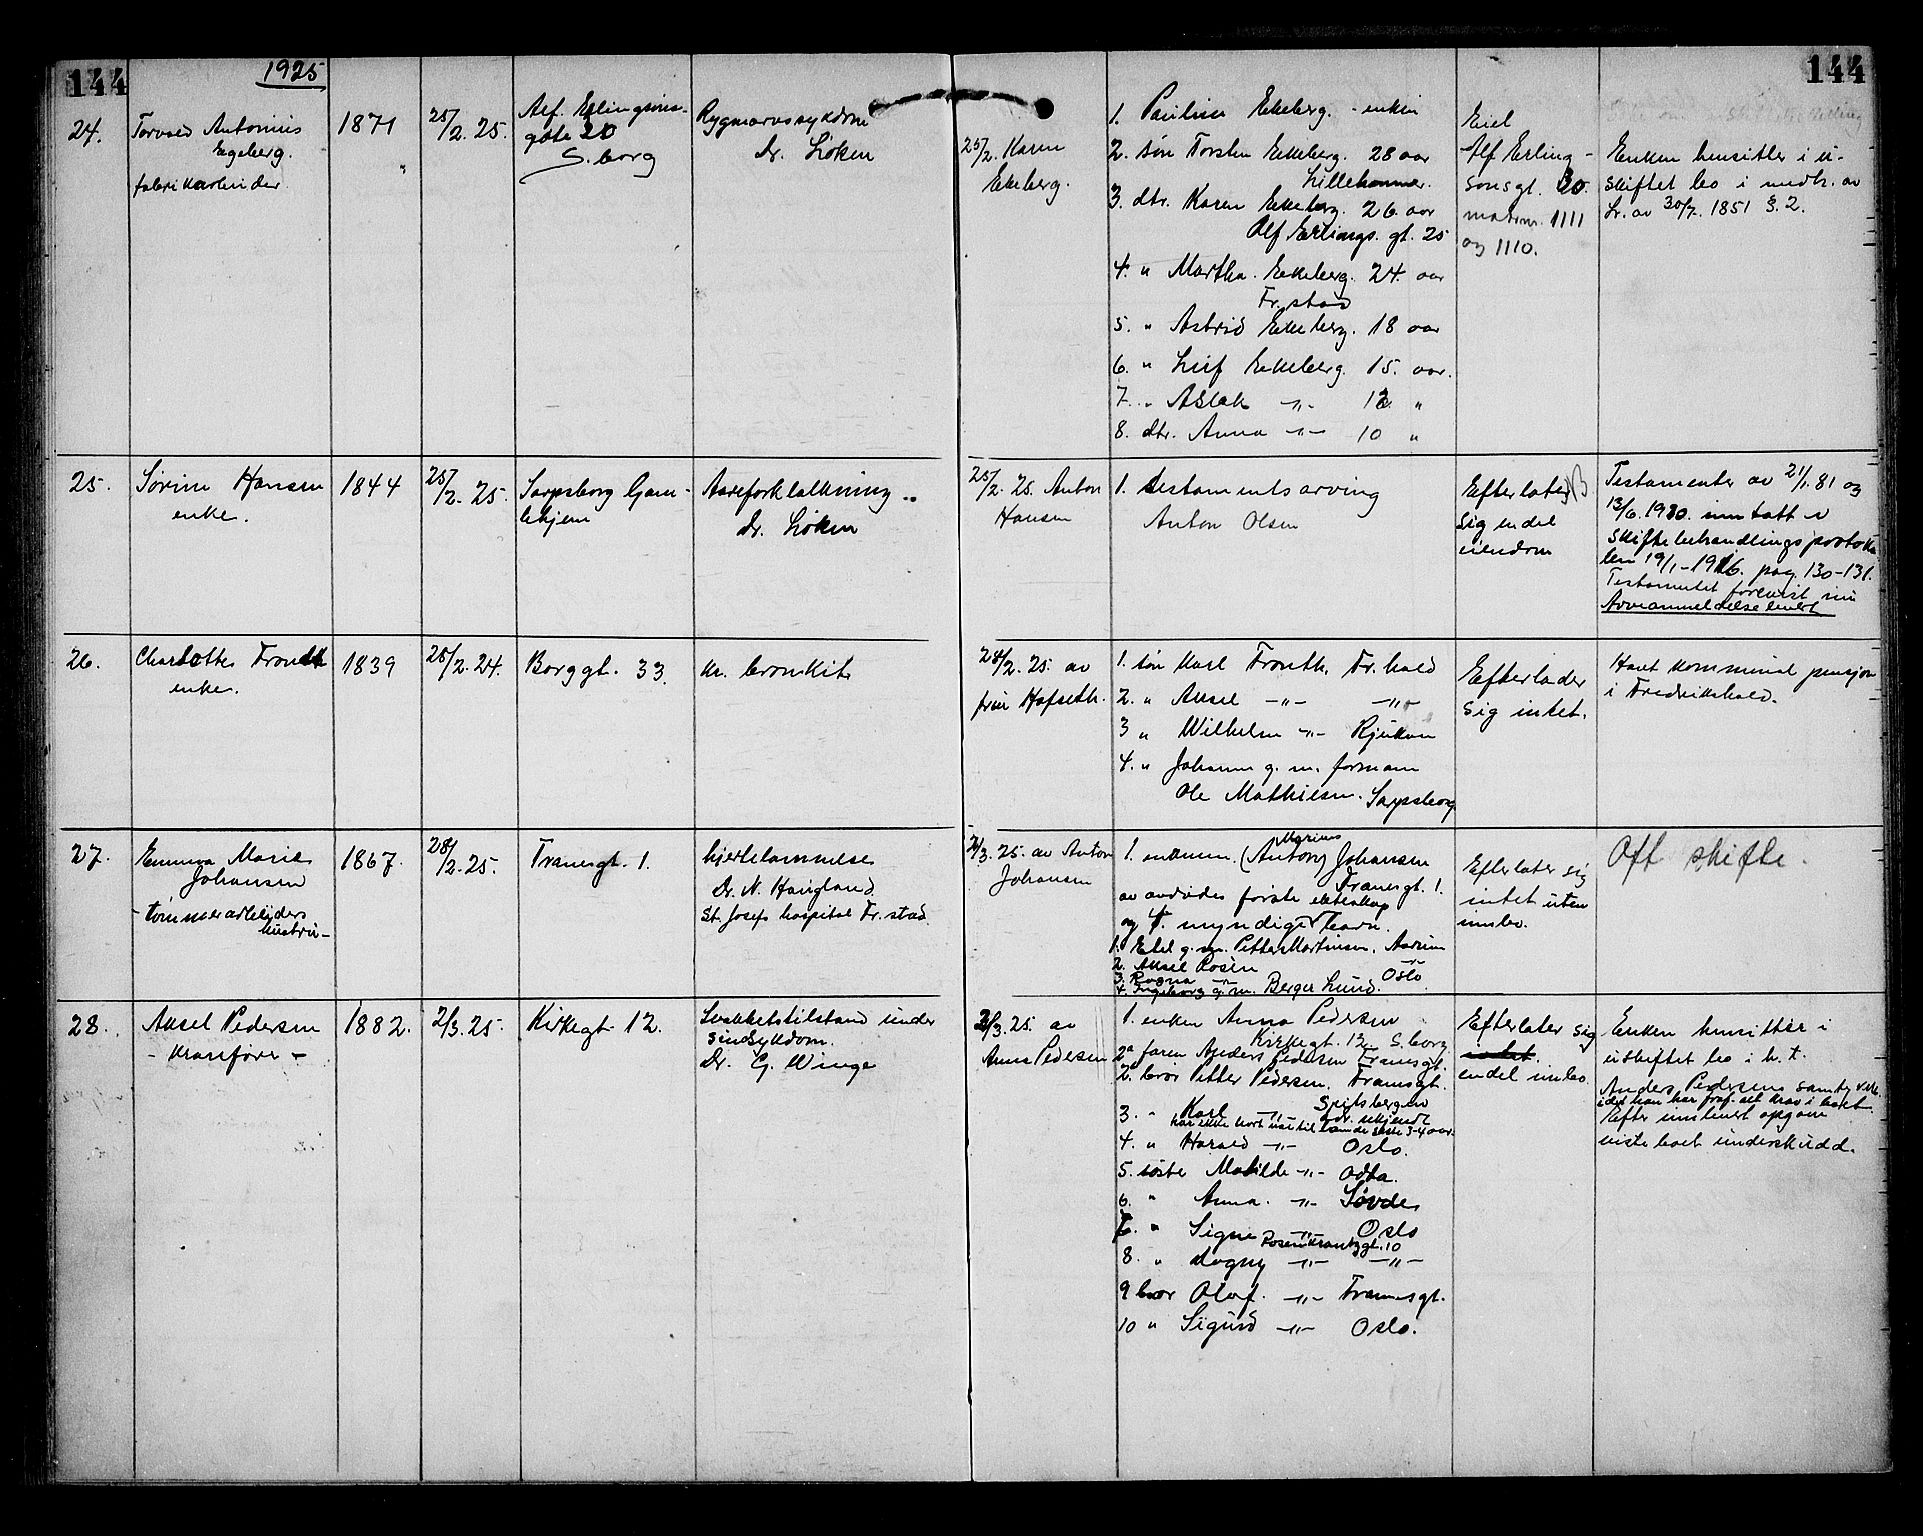 144
1925
144
24.
Torvald Antonius
Egeberg.
fabrikarbeider.
1871
25/2. 25.
Alf. Erlingsøns-
gate 20
S.borg
Rygmarvssykdom
Dr. Løken
25/2. Karen
Ekeberg.
1. Pauline Ekeberg. - enken
2. søn Torsten Ekeberg. 28 aar
Lillehammer.
3. dtr. Karen Ekeberg. 26 aar
Alf Erlings. gt. 25
4. " Martha. Ekeberg. 24. aar
Fr.stad
5. " Astrid Ekeberg. 18 aar
6. " Leif Ekeberg. 15. aar.
7. " Aslak -"- 12 "
8. dtr. Anna -"- 10 "
Eiet
Alf Erling-
sønsgt. 30.
matrnr. 1111
og 1110.
Enken hensitter i u-
skiftet bo i medh. av
Lr. av 30/7. 1851 §. 2.
25.
Sørine Hansen
enke.
1844
25/2. 25.
Sarpsborg Gam-
lehjem
Aareforkalkning ..
Dr. Løken
25/2. 25. Anton
Hansen
1. testamentsarving
Anton Olsen
Efterlater
sig endel
eiendom
Testamenter av 21/1. 81 og
13/6. 1910. inntatt i
skiftebehandlingsprotokol
len 19/1-1916. pag. 130-131.
Testamentet forevist
Arveanmeldelse levert
26.
Charlotte Fronth
enke.
1839
25/2. 24.
Borggt. 33.
kr. bronkit
28/2. 25. av
frue Hafseth.
1. søn Karl Fronth. Fr.hald
2. " Aksel -"- -"-
3 " Wilhelm -"- Rjukan
4. " Johanne g. m. formann
Ole Mathiesen. Sarpsborg
Efterlader
sig intet.
Havt kommunal pensjon
i Fredrikshald.
27.
Emma Marie
Johansen
- tømmerarbeiders
hustru -
1867.
28/2. 25.
Tranesgt. 1.
hjertelammelse
Dr. N. Haugland.
St. Josefs hospital Fr.stad.
2/3. 25. av Anton
Johansen
Marius
1. enkem. (Anton) Johansen
Tranesgt. 1.
av avdødes første ekteskap
og 4. myndige barn.
1. Etel g. m. Petter Martinsen.
2. Aksel Rosén -"-
3. Ragna -"- Oslo
4. Ingeborg g. m. Berger Lund.
Efterlater sig
intet uten
innbo.
Off. skifte.
28.
Aksel Pedersen
- kranfører -
1882.
2/3. 25.
Kirkegt. 12.
Svakketstilstand under
sindsykdom.
Dr. G. Winge
2/3. 25. av
Anna Pedersen
1. enken Anna Pedersen
Kirkegt. 12. S.borg
2a faren Anders Pedersen Tranesgt.
2. bror Petter Pedersen. Tranesgt.
Spitsbergen
3. " Karl -"- adr. ukjendt
har ikke hørt noe til ham de siste 3-4 aar.
4. " Harald -"- Oslo.
5. søster Matilde -"- Odda.
6. " Anna. -"- Søvde
7. " Signe -"- Oslo
Rosenkrantzgt. 10
8. " Dagny -"- -"-
9 bror Olaf. -"- Tranesgt.
10 " Sigurd -"- Oslo.
Efterlater sig
intet.
endel innbo.
Enken hensitter i
uskiftet bo i h. t.
Anders Pedersens samtykke
idet han har fraf. alt krav i boet.
Efter innlevert opgave
viste boet underskudd.